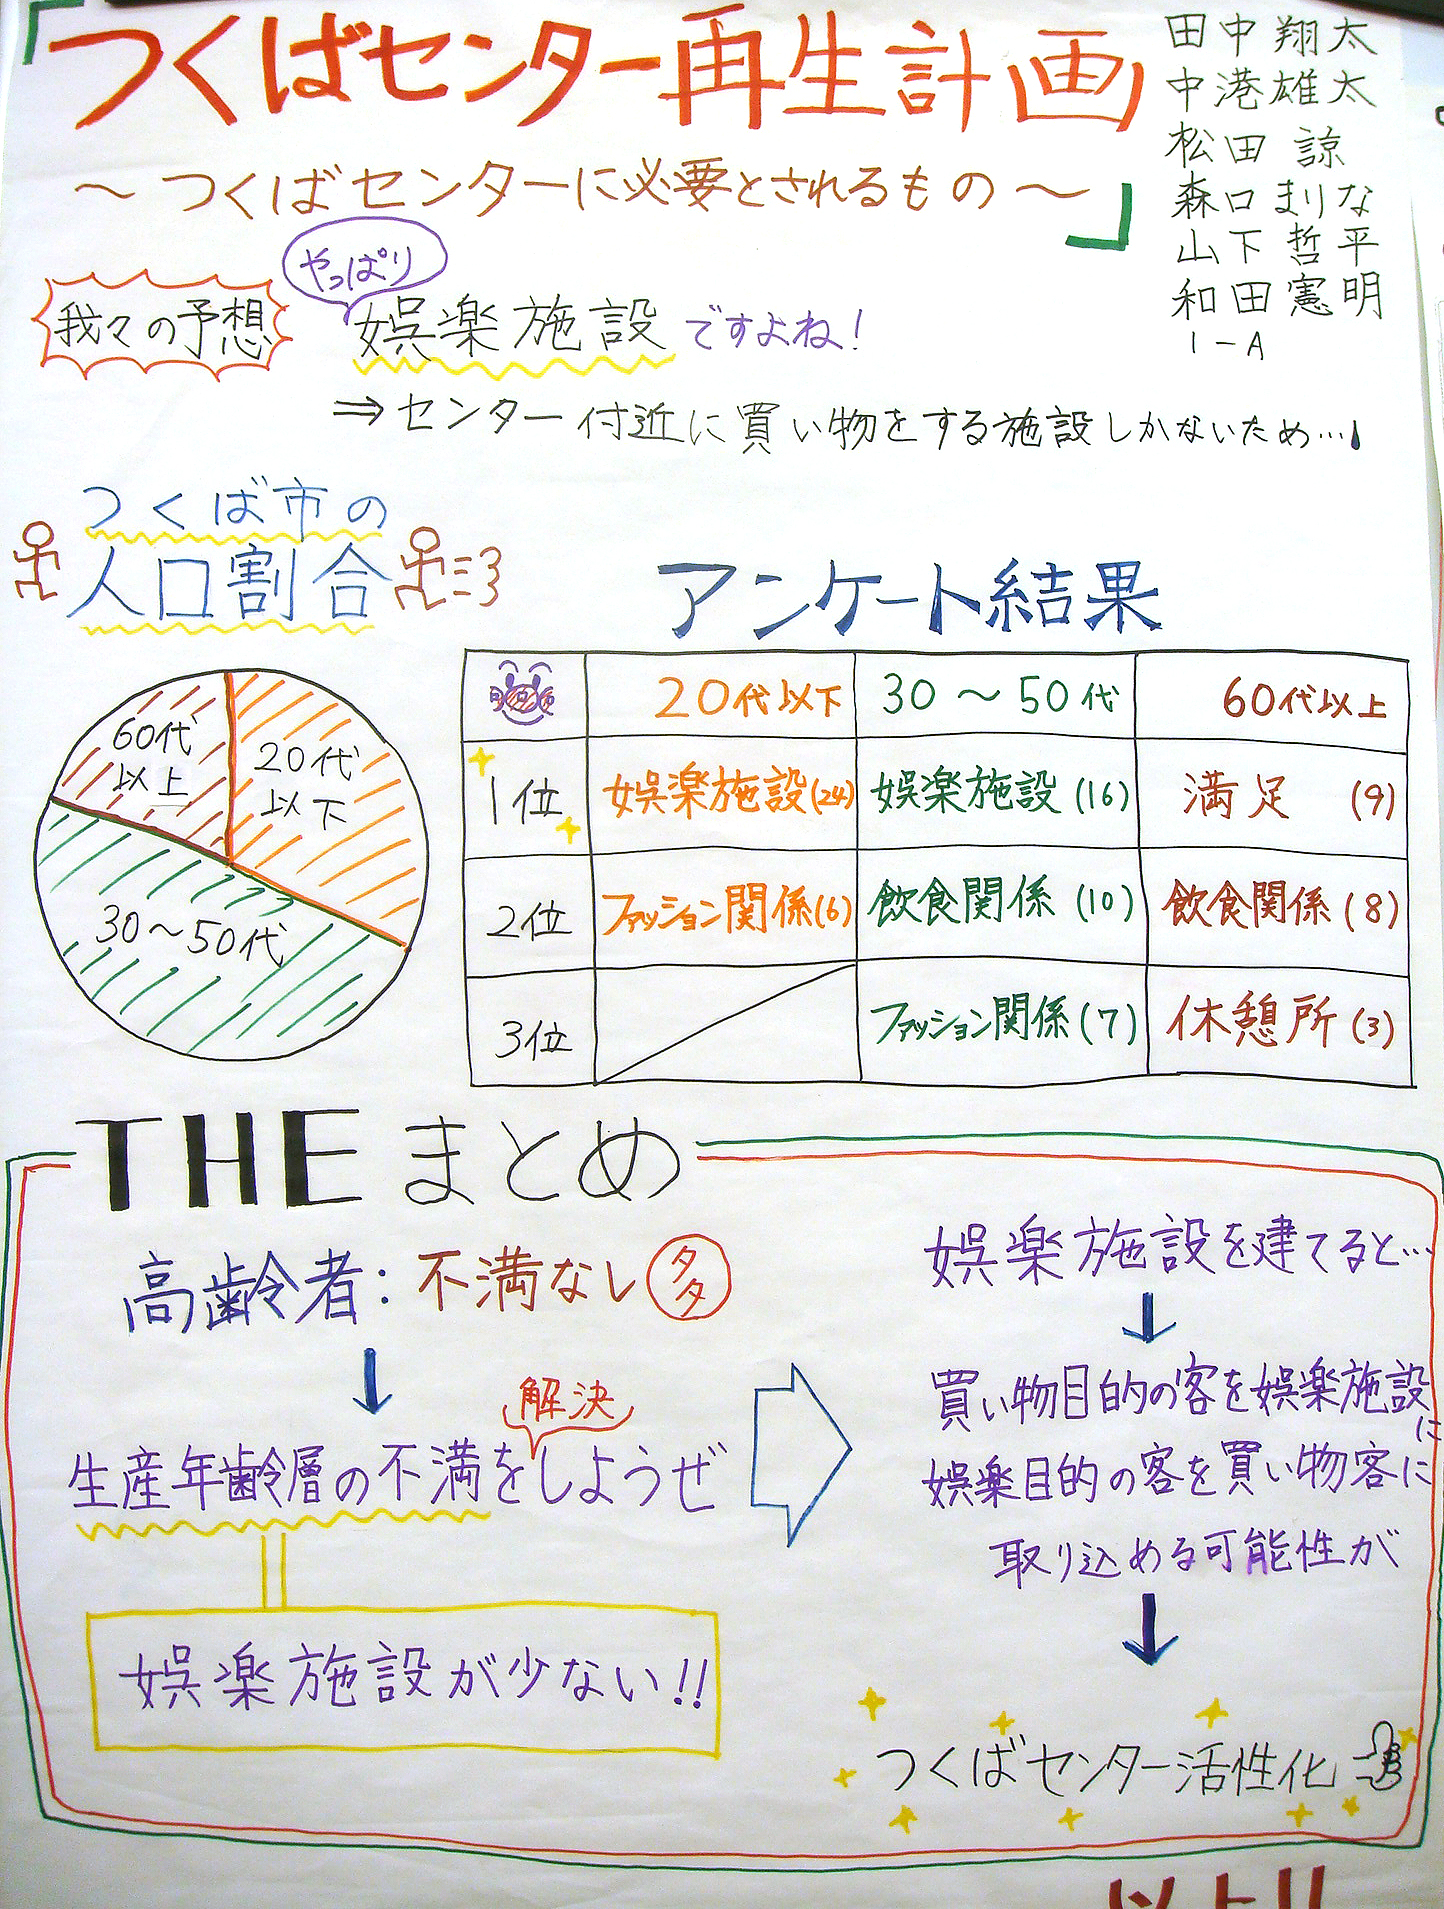 「つくばセンター再生計画
～つくばセンターに必要とされるもの～」
田中翔太
中港雄太
松田 諒
森口まりな
山下哲平
和田憲明
1-A
我々の予想
やっぱり
娯楽施設ですよね!
⇒センター付近に買い物をする施設しかないため…!
つくば市の
人口割合
60代
以上
20代
以下
30～50代
アンケート結果
20代以下 30～50代 60代以上
1位 娯楽施設(24) 娯楽施設(16) 満足(9)
2位 ファッション関係(6) 飲食関係(10) 飲食関係(8)
3位 ファッション関係(7) 休憩所(3)
THEまとめ
高齢者:不満なし多
解決
生産年齢層の不満をしようぜ
娯楽施設が少ない!!
娯楽施設を建てると…
買い物目的の客を娯楽施設に
娯楽目的の客を買い物客に
取り込める可能性が
つくばセンター活性化
以上!!